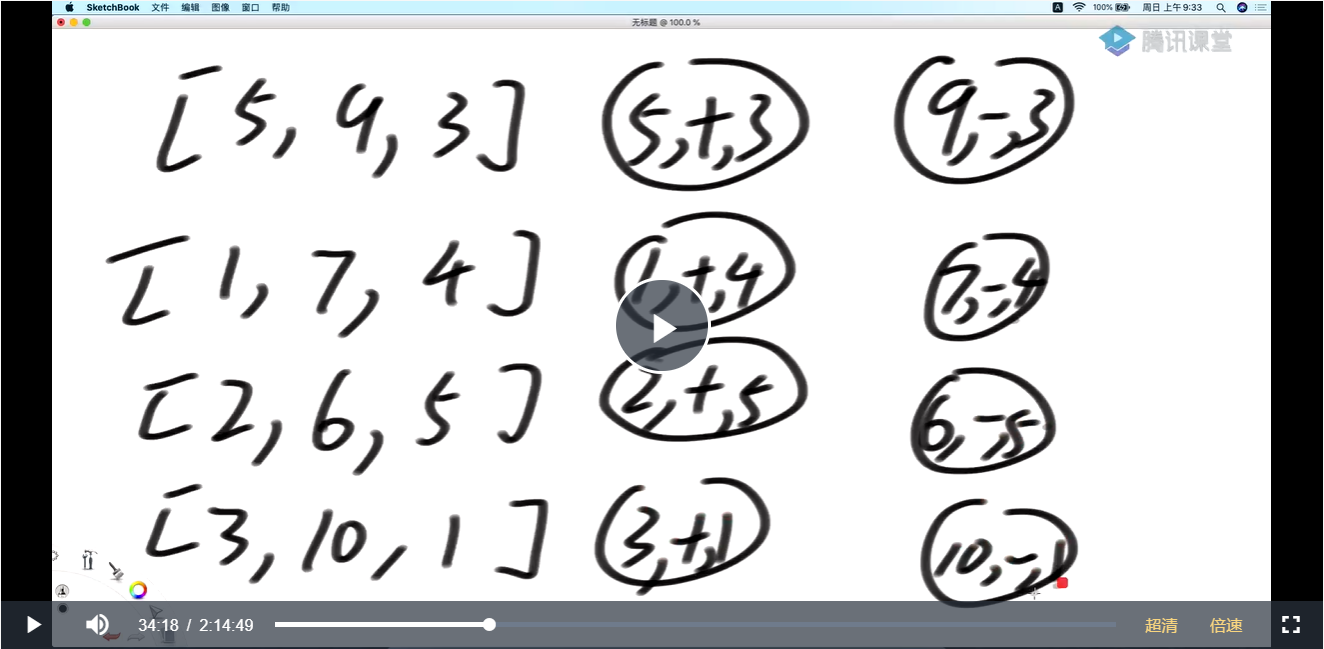 SketchBook 文件 编辑 图像 窗口 帮助 A 100% 周日 上午 9:33
无标题 @ 100.0 %
腾讯课堂
[5, 9, 3] 5,+,3 9,-,3
[1, 7, 4] 1,+,4 7,-,4
[2, 6, 5] 2,+,5 6,-,5
[3, 10, 1] 3,+,1 10,-,1
34:18 / 2:14:49 超清 倍速